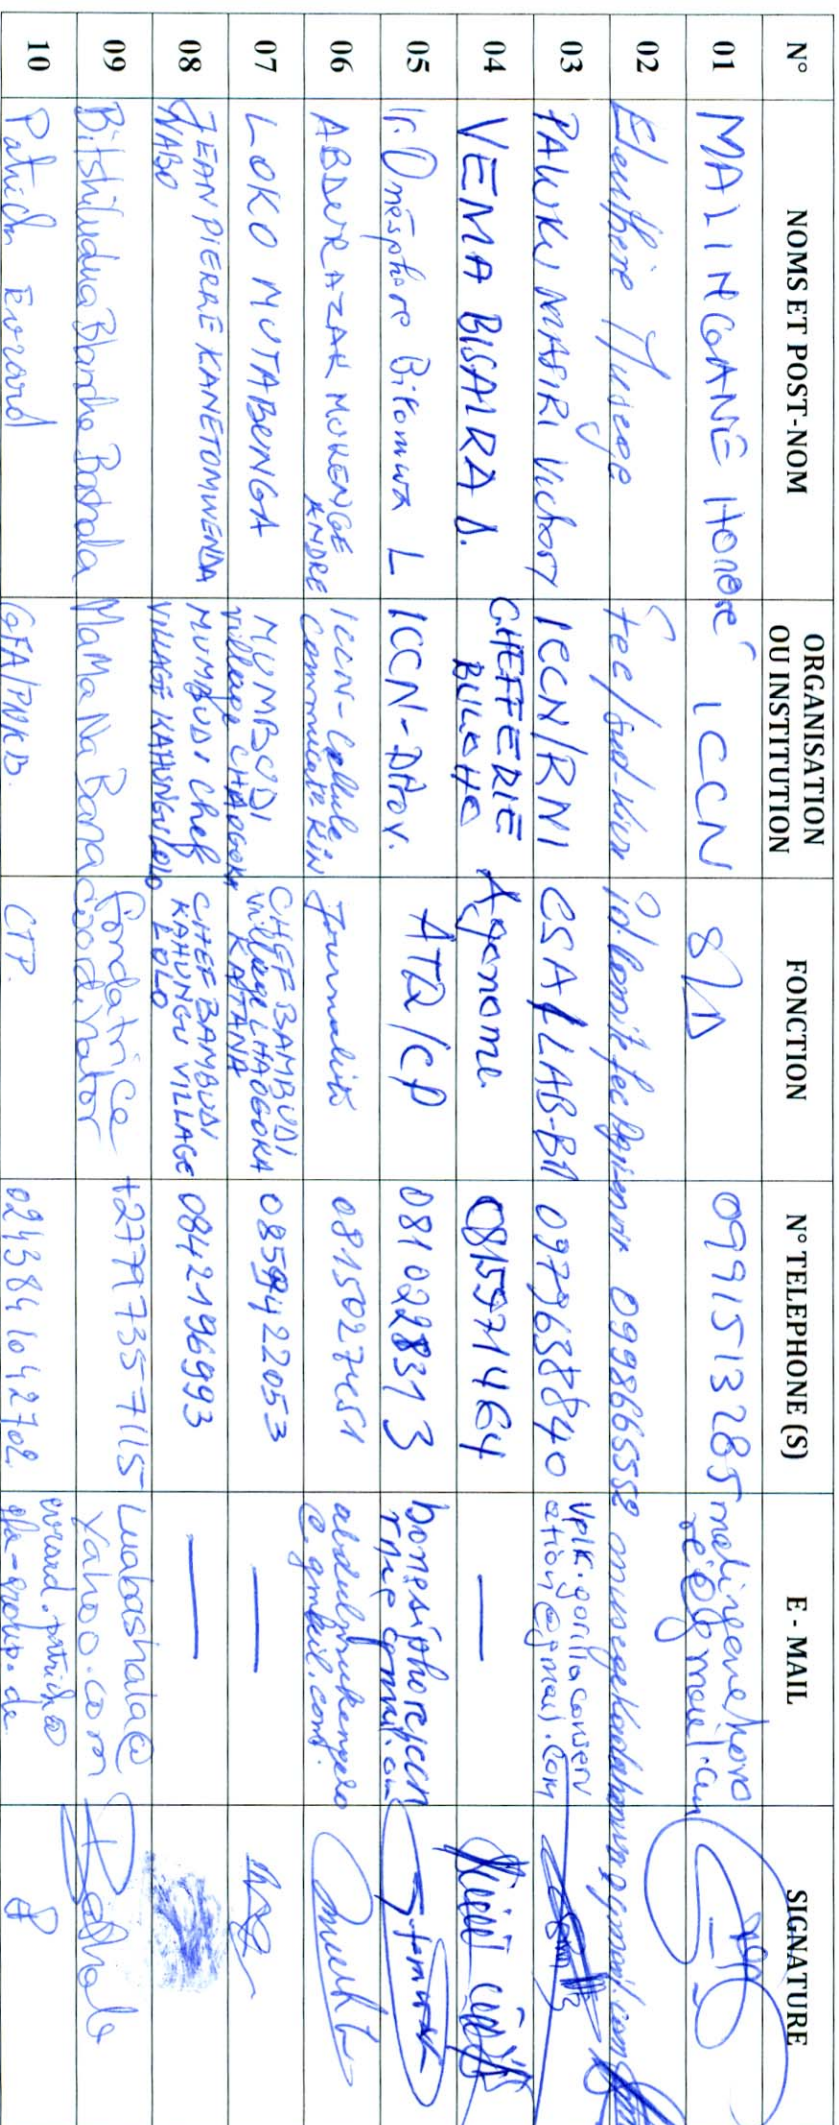 N° NOMS ET POST-NOM ORGANISATION OU INSTITUTION FONCTION N° TELEPHONE (S) E - MAIL SIGNATURE
01 MALINGANE Honoré ICCN S/D 0991513285
02 Eleuthère Musege Fec/Sud-Kivu 0998665558
03 PALUKU MASIRI Victory ICCN/RNI CSA/LAB-BM 0979638840 Vplk.gorillaconserv
ation@gmail.com
04 VEMA BISAIRA D. CHEFFERIE
BULOHO Agronome 0815971464 —
05 Ir. Onésphore Bitomwa L ICCN-DProv. ATQ/CP 0810228313
06 ABDURAZAK MUKENGE
ANDRE ICCN-Cellule
Communicat° KIN Journaliste 0815027451
@gmail.com
07 LOKO MUTABENGA MUMBUDI
village CHAOGOKA CHEF BAMBUDI
village CHAOGOKA
KATANA —
08 JEAN PIERRE KANETOMWENDA
NABO MUMBUDI Chef
VILLAGE KAHUNGU LOLO CHEF BAMBUDI
KAHUNGU VILLAGE
LOLO 0842196993 —
09 Bitshiludua Blanche Bashala MaMa Na Bana Fondatrice
coordinator +27797357115 Luabashala@
yahoo.com Bashala
10 Patrick Evrard GFA/PNKB. CTP. 0243841042702 evrard.patrick@
gfa-group.de